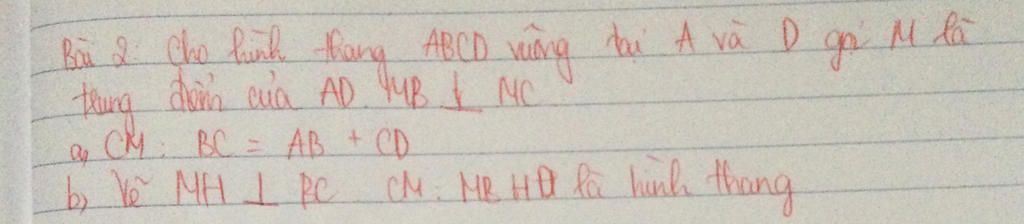 Bài 2: Cho hình thang ABCD vuông tại A và D gọi M là
trung điểm của AD. MB ⊥ MC
a, CM: BC = AB + CD
b, Vẽ MH ⊥ BC CM: MBHD là hình thang